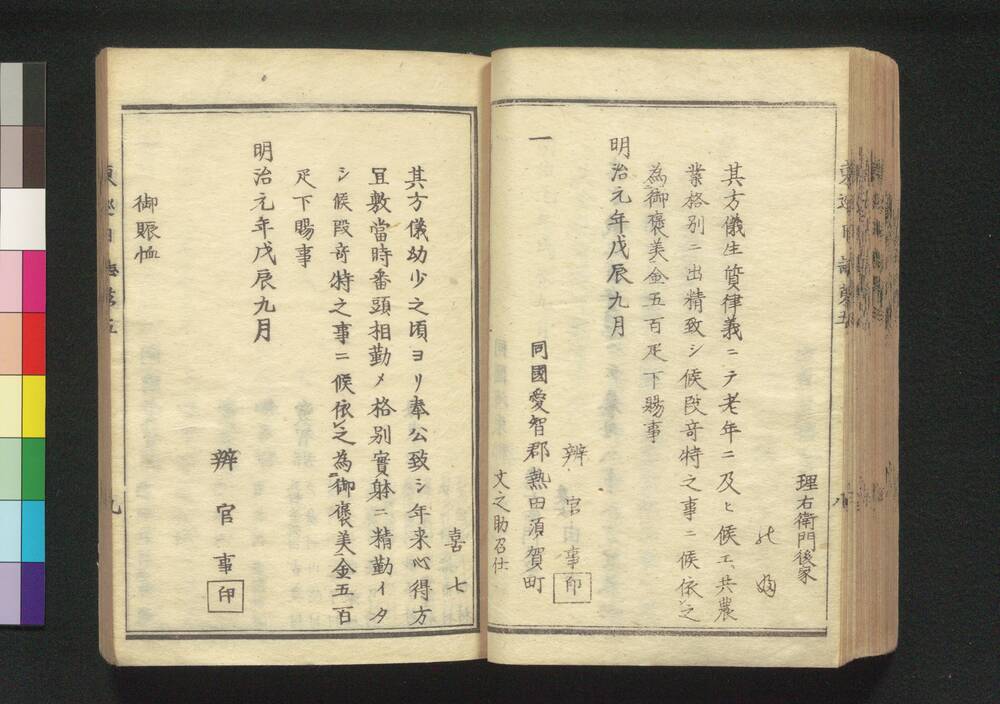 理右衛門後家
其方儀生質律義ニテ老年ニ及ヒ候エ共農
業格別ニ出精致シ候段竒特之事ニ候依之
為御褒美金五百疋下賜事
明治元年戊辰九月
辨官事印
一
同國愛智郡熱田須賀町
文之助召仕
喜七
其方儀幼少之頃ヨリ奉公致シ年来心得方
冝敷當時番頭相勤メ格別實躰ニ精勤イタ
シ候段竒特之事ニ候依之為御褒美金五百
疋下賜事
明治元年戊辰九月
辨官事印
御賑恤
九